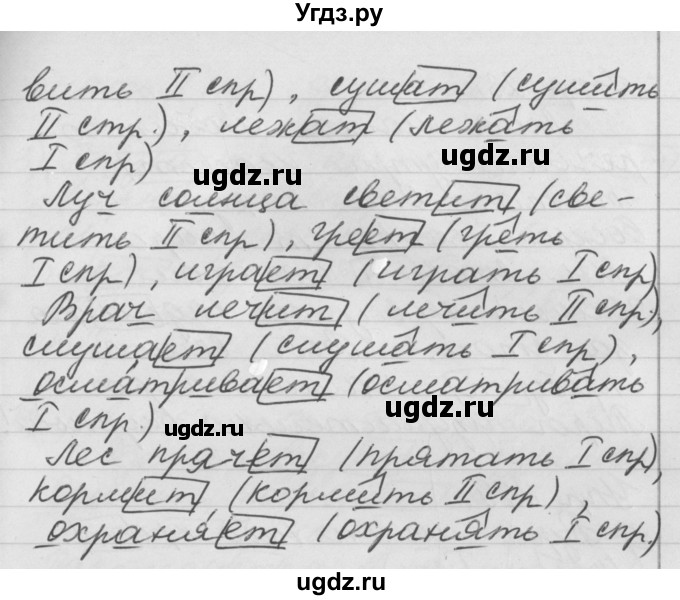 Угдз.ру
вить II спр), сушат (сушить
II стр.), лежат (лежать
I спр)
ugdz.ru
ugdz.ru
Луч солнца светит (све-
тить II спр), греет (греть
I спр), играет (играть I спр)
Врач лечит (лечить II спр.),
слушает (слушать I спр),
осматривает (осматривать
ugdz.ru
I спр.)
ugdz.ru
Лес прячет (прятать I спр),
кормит, (кормить II спр),
охраняет (охранять I спр.)
ugdz.ru